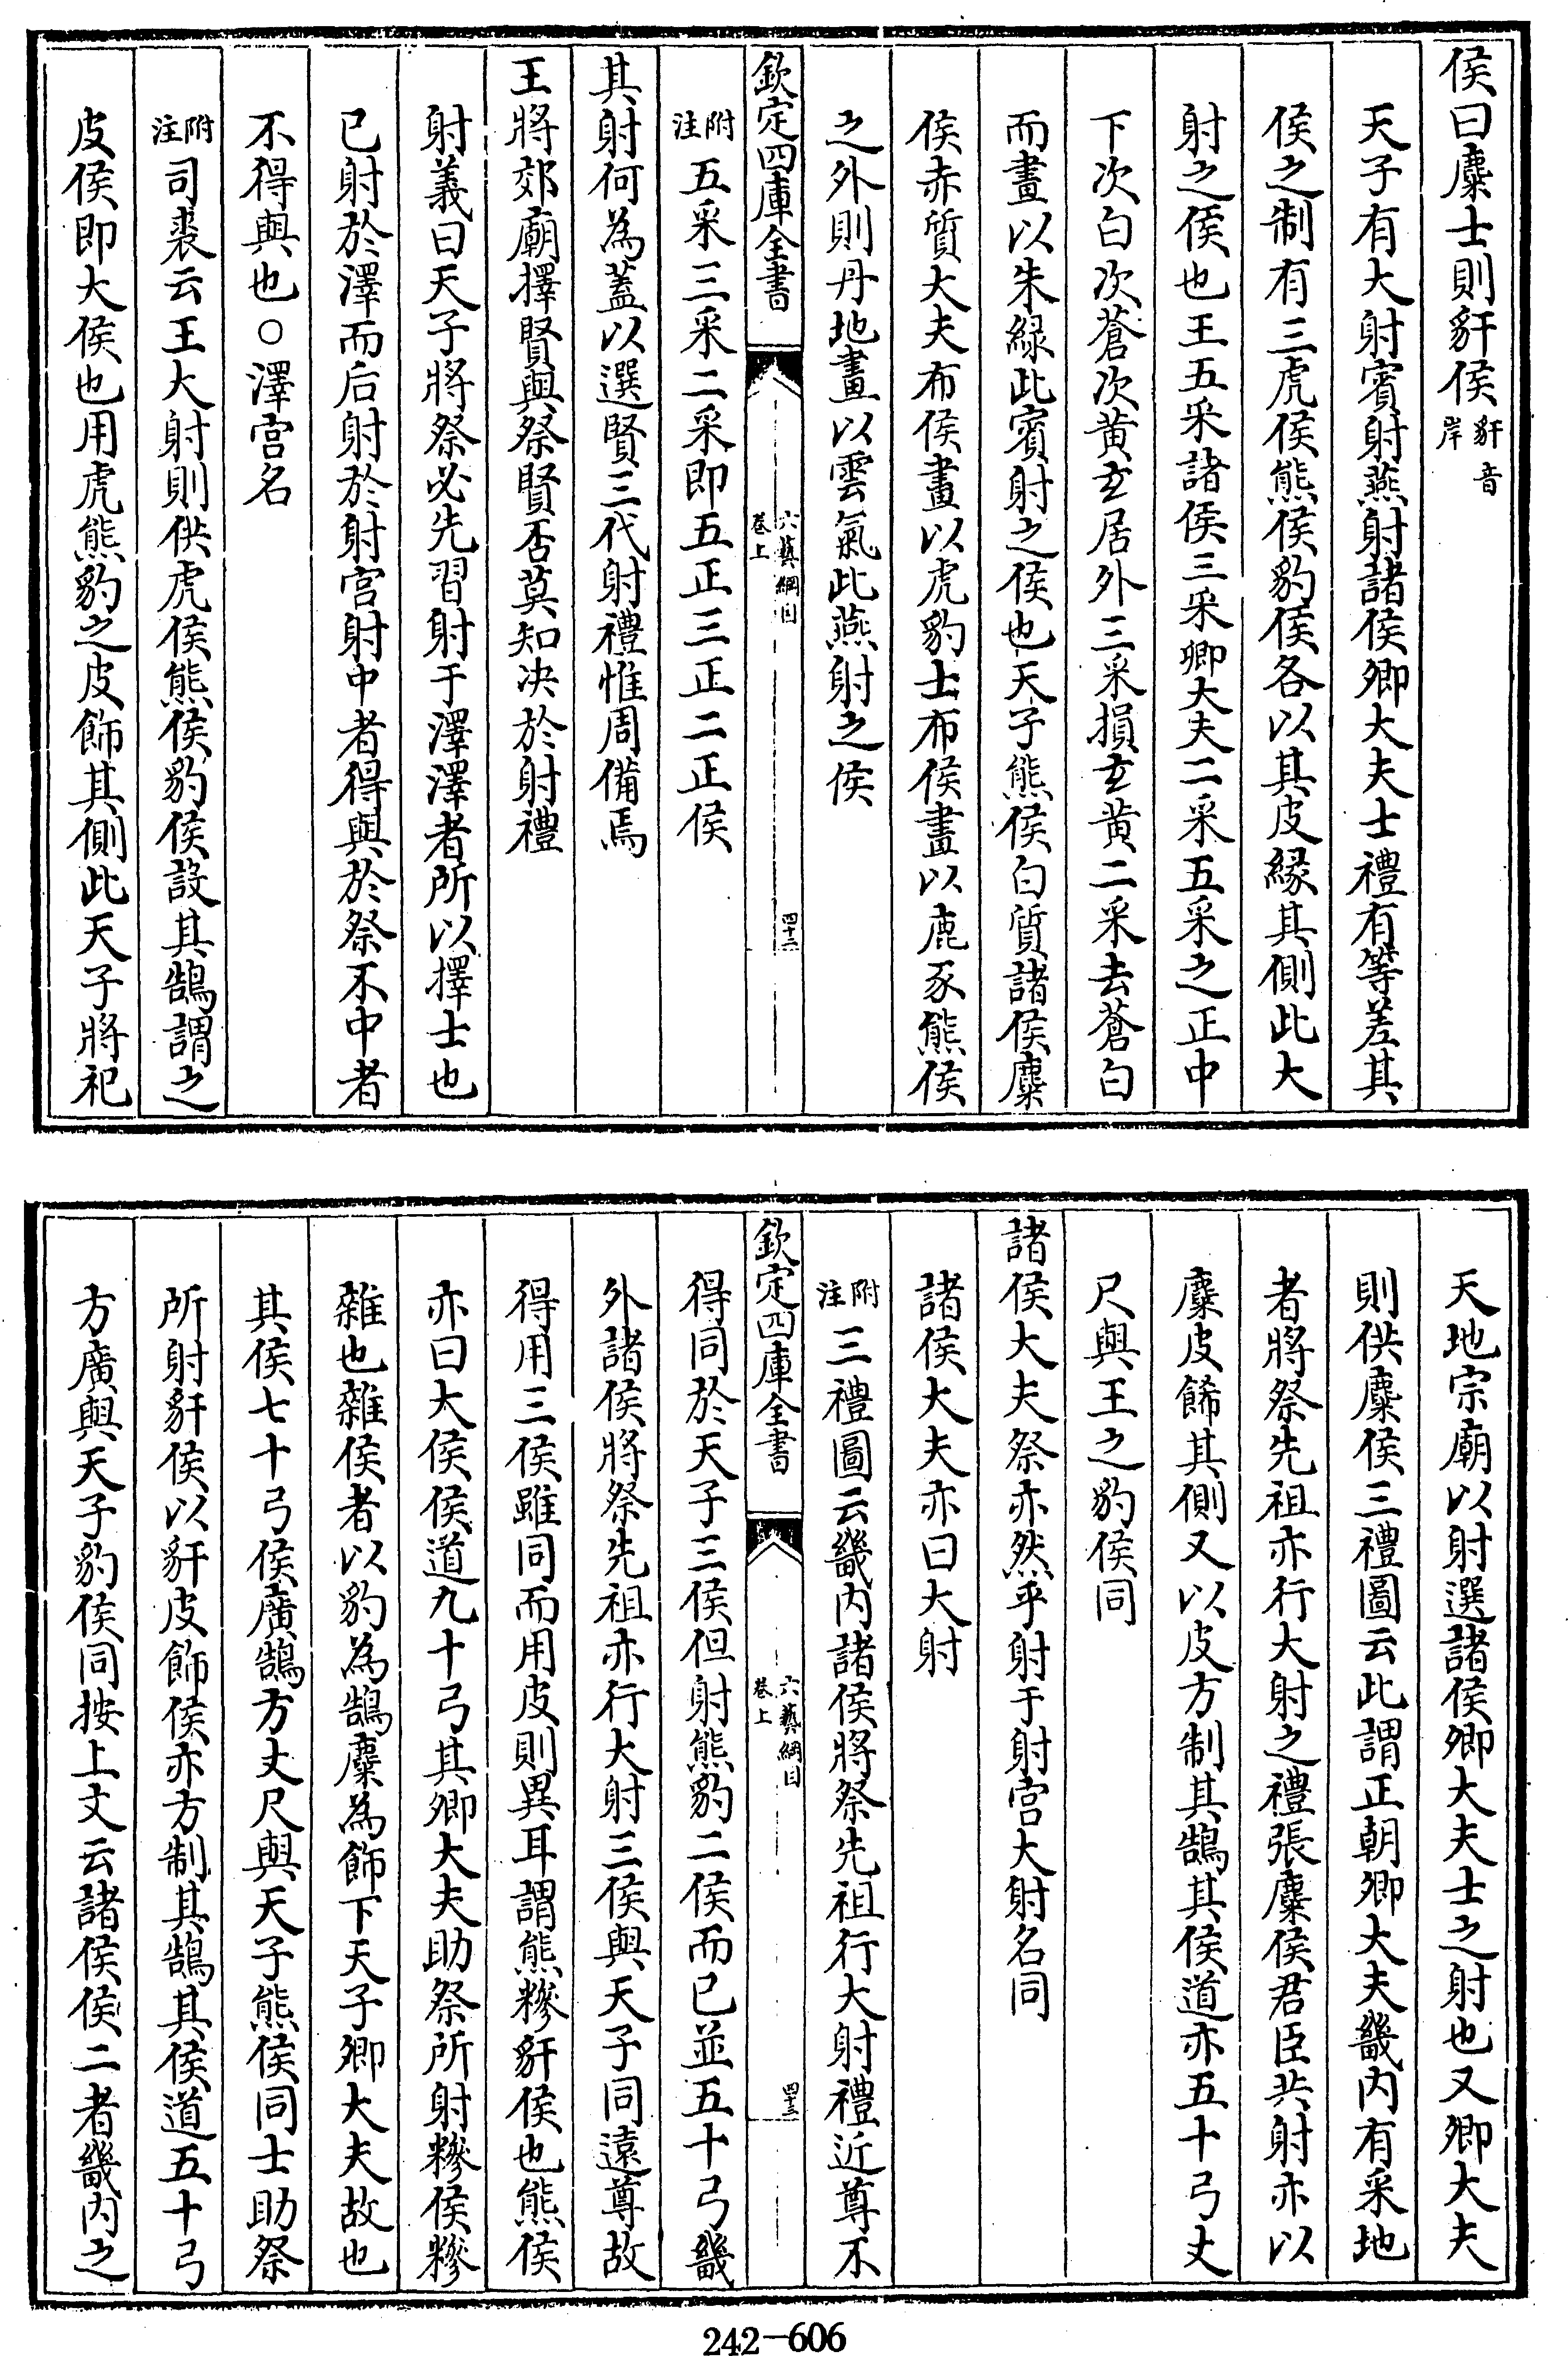 侯曰麋士則豻侯豻音岸
天子有大射賓射燕射諸侯卿大夫士禮有等差其
侯之制有三虎侯熊侯豹侯各以其皮緣其側此大
射之侯也王五采諸侯三采卿大夫二采五采之正中
下次白次蒼次黄玄居外三采損玄黄二采去蒼白
而畫以朱緑此賓射之侯也天子熊侯白質諸侯麋
侯赤質大夫布侯畫以虎豹士布侯畫以鹿豕熊侯
之外則丹地畫以雲氣此燕射之侯
欽定四庫全書
六藝綱目
卷上
四十二
附注五采三采二采即五正三正二正侯
其射何為蓋以選賢三代射禮惟周備焉
王將郊廟擇賢與祭賢否莫知决於射禮
射義曰天子將祭必先習射于澤澤者所以擇士也
已射於澤而后射於射宫射中者得與於祭不中者
不得與也○澤宫名
附注司裘云王大射則供虎侯熊侯豹侯設其鵠謂之
皮侯即大侯也用虎熊豹之皮飾其側此天子將祀
天地宗廟以射選諸侯卿大夫士之射也又卿大夫
則供麋侯三禮圖云此謂正朝卿大夫畿内有采地
者將祭先祖亦行大射之禮張麋侯君臣共射亦以
麋皮餙其側又以皮方制其鵠其侯道亦五十弓丈
尺與王之豹侯同
諸侯大夫祭亦然乎射于射宫大射名同
諸侯大夫亦曰大射
附注三禮圖云畿内諸侯將祭先祖行大射禮近尊不
欽定四庫全書
六藝綱目
卷上
四十三
得同於天子三侯但射熊豹二侯而已並五十弓畿
外諸侯將祭先祖亦行大射三侯與天子同遠尊故
得用三侯雖同而用皮則異耳謂熊糝豻侯也熊侯
亦曰大侯侯道九十弓其卿大夫助祭所射糝侯糝
雜也雜侯者以豹為鵠麋為飾下天子卿大夫故也
其侯七十弓侯廣鵠方丈尺與天子熊侯同士助祭
所射豻侯以豻皮飾侯亦方制其鵠其侯道五十弓
方廣與天子豹侯同按上文云諸侯侯二者畿内之
242-606